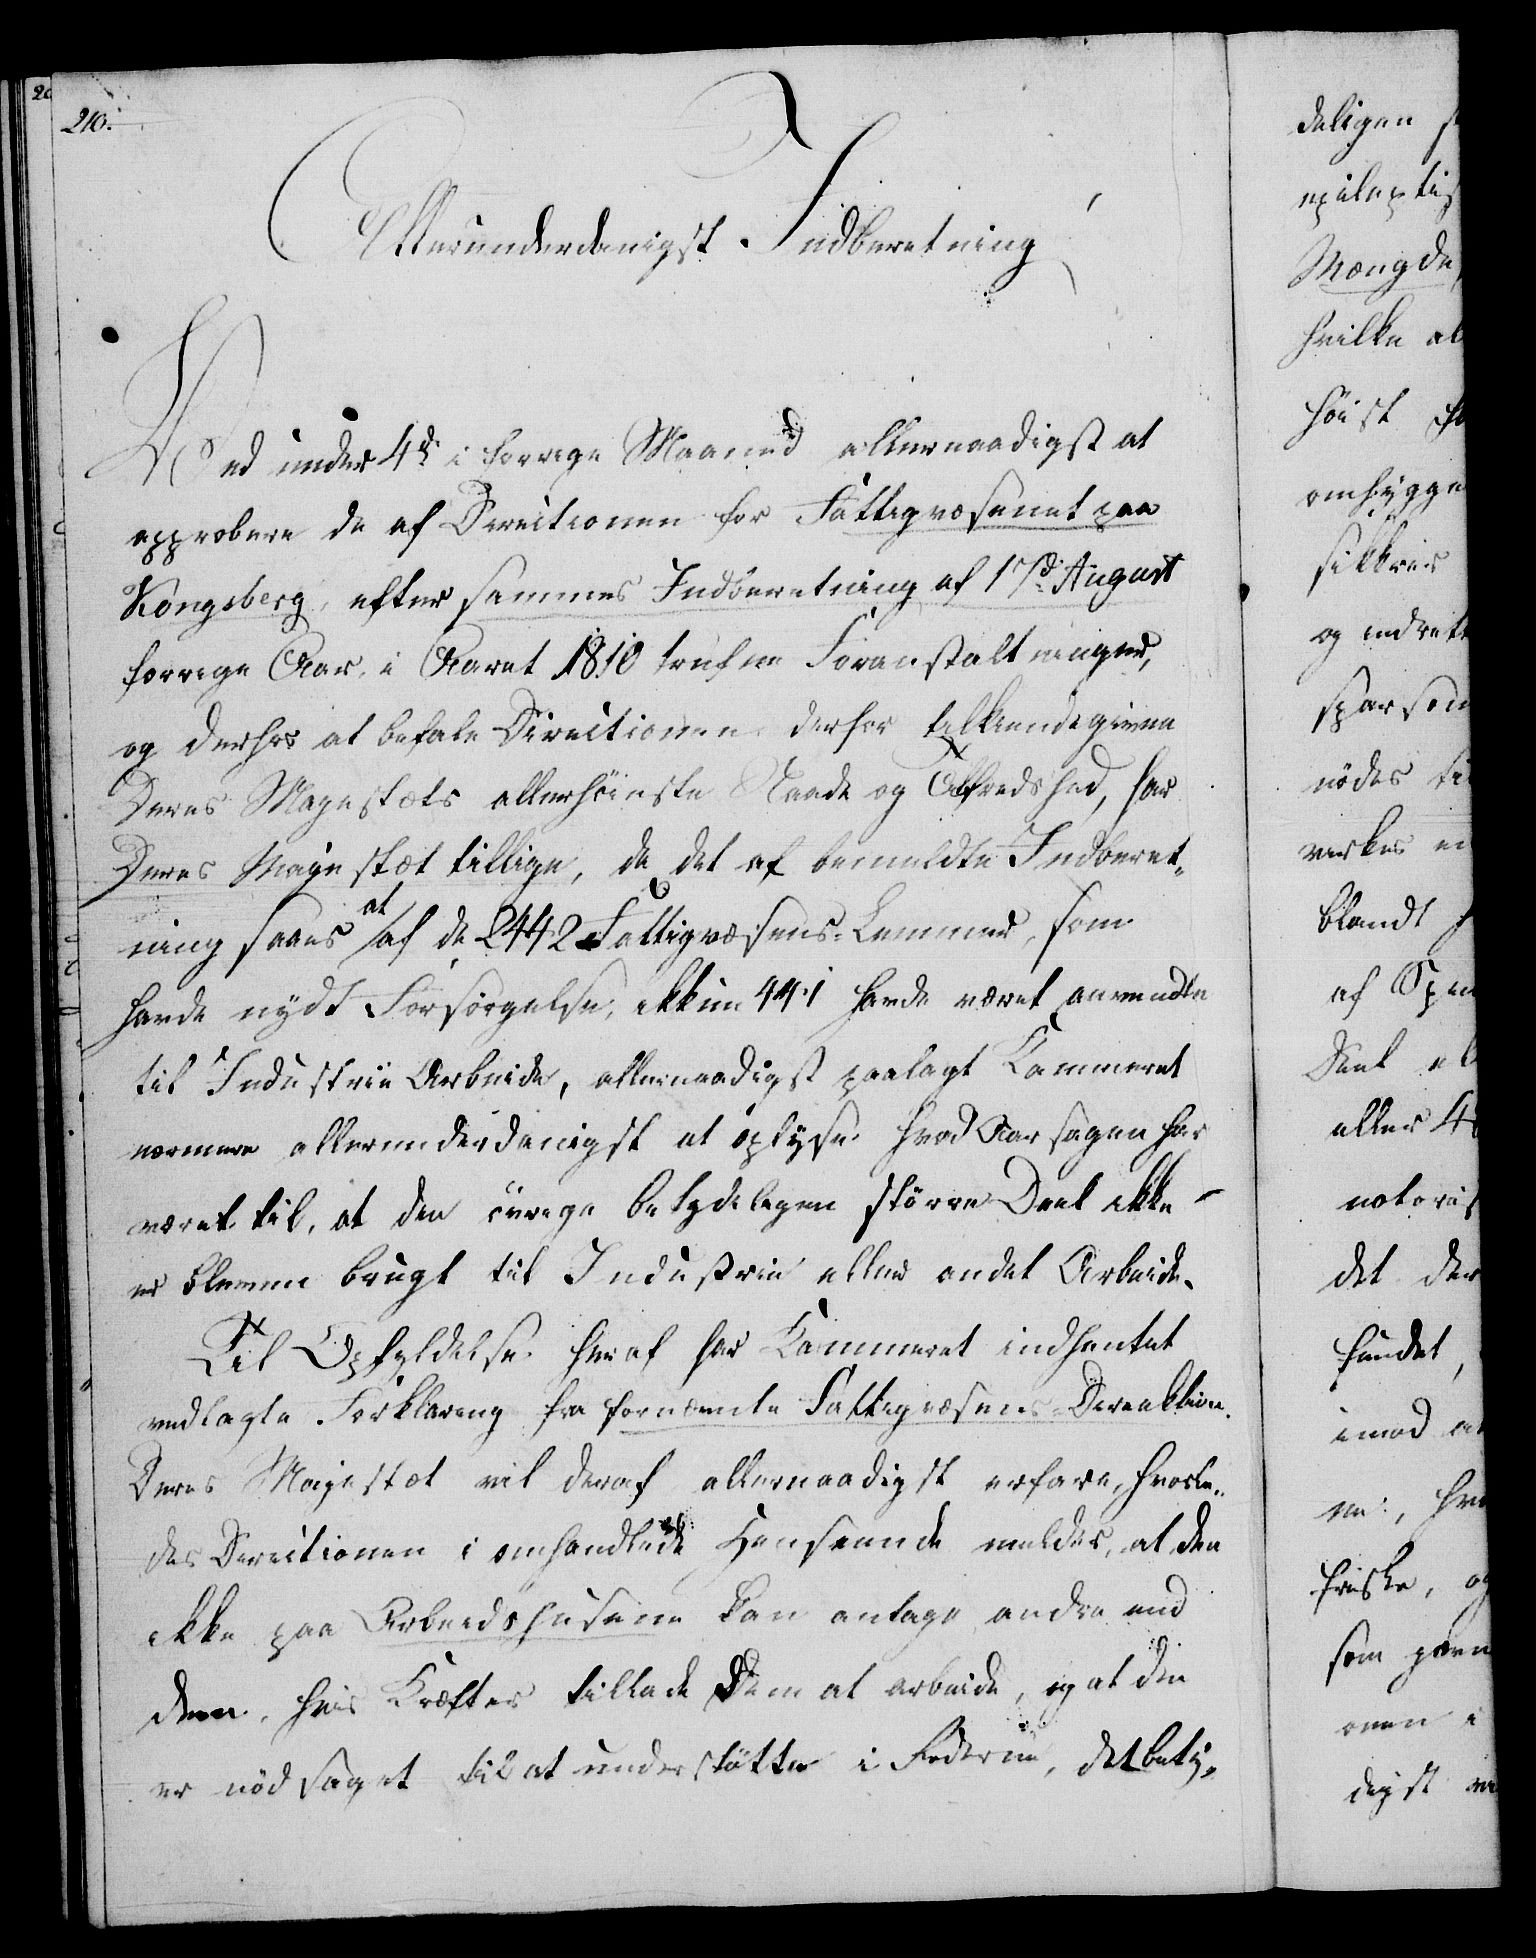 210.
Allerunderdanigst Indberetning
Ved under 4de i forrige Maaned allernaadigst at
approbere de af Directionen for Fattigvæsenet paa
Kongsberg, efter sammes Indberetning af 17de August
forrige Aar, i Aaret 1810 trufne Foranstaltninger,
og derhos at befale Directionen derfor tilkiendegiven
Deres Majestæts allerhöieste Naade og Tilfredshed, har
Deres Majestæt tillige, da det af bemeldte Indberet-
ning saaes at af de 2442 Fattigvæsens-Lemmer, som
havde nydt Forsörgelse, ikkun 441 havde været anvendte
til Industrie Arbeide, allernaadigst paalagt Kammeret
nærmere allerunderdanigst at oplyse hvad Aarsagen har
været til, at den övrige betydeligen större Deel ikke
er bleven brugt til Industrie eller andet Arbeide.
Til Opfyldelse heraf har Kammeret indhentet
vedlagte Forklaring fra fornævnte Fattigvæsens-Direaktion.
Deres Majestæt vil deraf allernaadigst erfare, hvorle-
des Directionen i omhandlede Henseende melder, at den
ikke paa Arbeidshusene kan antage andre end
dem, hvis Kræfter tillade Dem at arbeide, og at den
er nödsaget til at understötte i Federne, det bety-
deligen
epileptis
Mængde,
hvilke al
höist
omhygge
sikkres
og indrett
sparsom
nödes ti
virkes
blandt
af Spin
Deel
eller 4
notoris
det der
fundet,
imod
ne:, hv
friske, og
som
oven i
digst